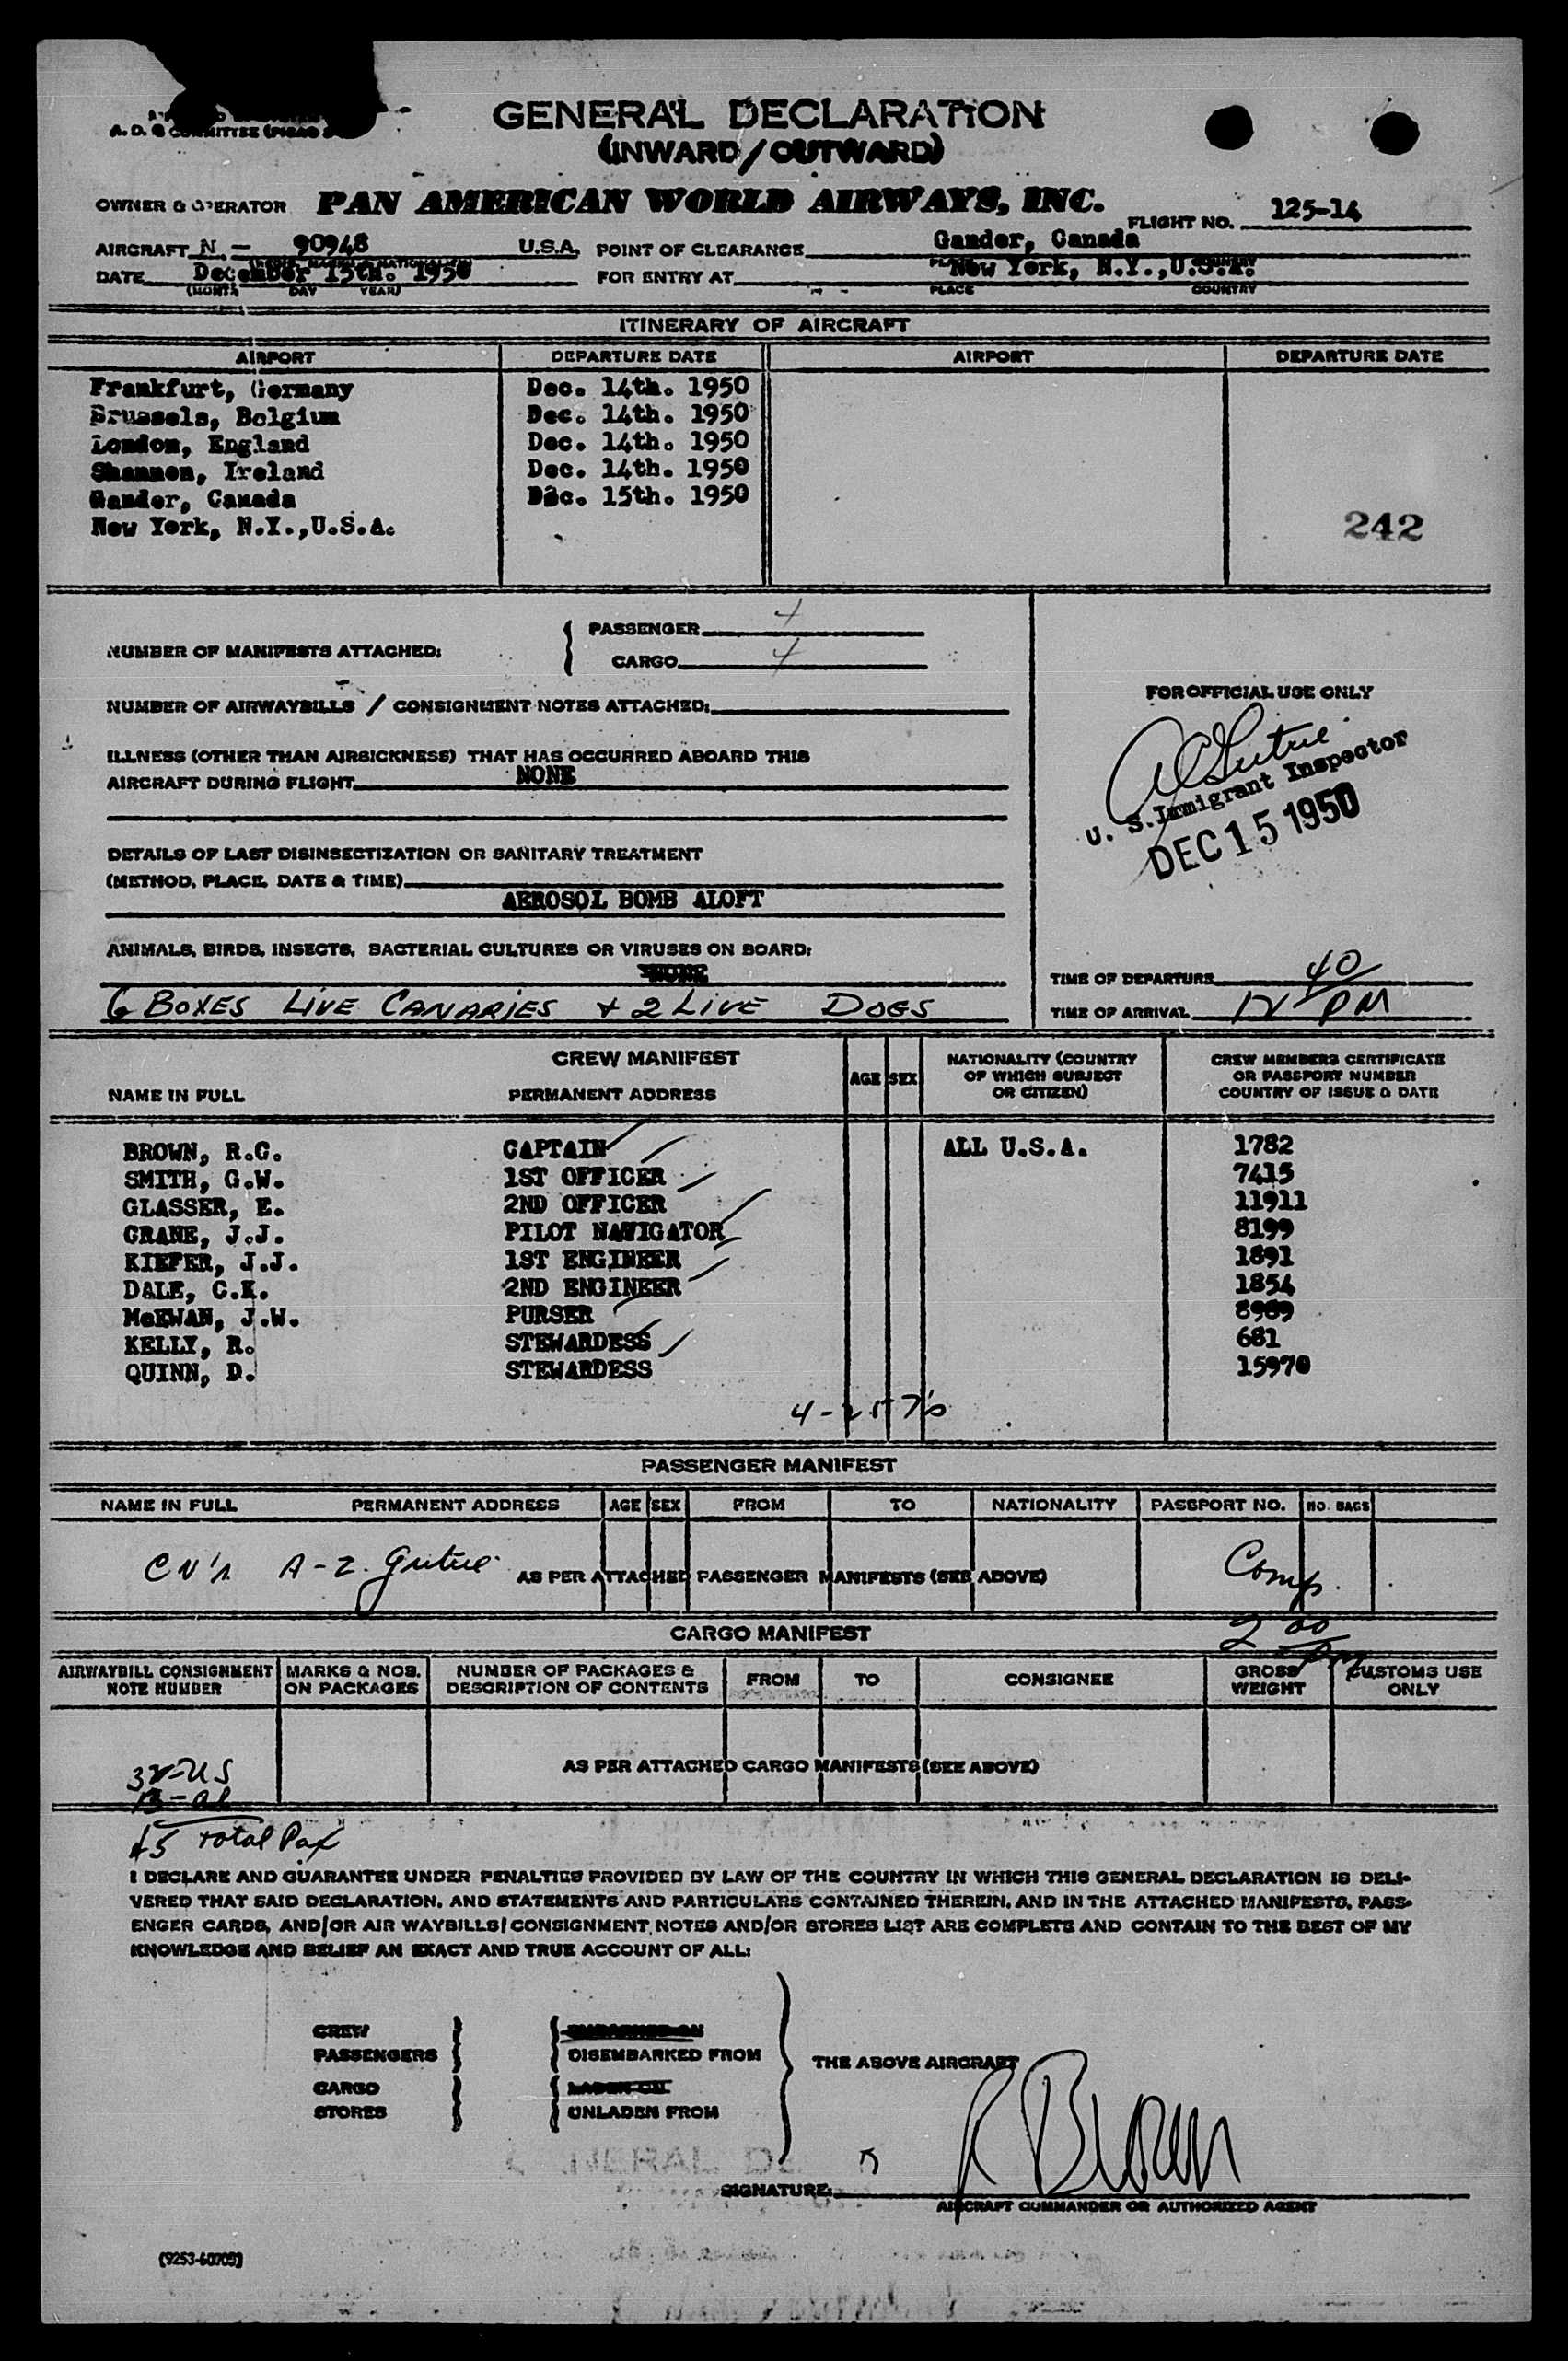 GENERAL DECLARATION
(INWARD/OUTWARD)
OWNER & OPERATOR PAN AMERICAN WORLD AIRWAYS, INC.
FLIGHT NO. 125-14
AIRCRAFT N - 90948 U.S.A. POINT OF CLEARANCE Gander, Canada
DATE December 15th. 1950 FOR ENTRY AT New York, N.Y.,U.S.A.
(MONTH DAY YEAR) PLACE COUNTRY
ITINERARY OF AIRCRAFT
AIRPORT DEPARTURE DATE AIRPORT DEPARTURE DATE
Frankfurt, Germany Dec. 14th. 1950
Brussels, Belgium Dec. 14th. 1950
London, England Dec. 14th. 1950
Shannon, Ireland Dec. 14th. 1950
Gander, Canada Dec. 15th. 1950
New York, N.Y.,U.S.A.
242
NUMBER OF MANIFESTS ATTACHED: PASSENGER 4
CARGO 4
NUMBER OF AIRWAYBILLS / CONSIGNMENT NOTES ATTACHED:
FOR OFFICIAL USE ONLY
U. S. Immigrant Inspector
DEC 15 1950
ILLNESS (OTHER THAN AIRSICKNESS) THAT HAS OCCURRED ABOARD THIS
AIRCRAFT DURING FLIGHT NONE
DETAILS OF LAST DISINSECTIZATION OR SANITARY TREATMENT
(METHOD, PLACE, DATE & TIME)
AEROSOL BOMB ALOFT
ANIMALS, BIRDS, INSECTS, BACTERIAL CULTURES OR VIRUSES ON BOARD:
NONE
6 BOXES LIVE CANARIES + 2 LIVE DOGS
TIME OF DEPARTURE
TIME OF ARRIVAL 12 40 PM
CREW MANIFEST
NAME IN FULL PERMANENT ADDRESS AGE SEX NATIONALITY (COUNTRY OF WHICH SUBJECT OR CITIZEN) CREW MEMBERS CERTIFICATE OR PASSPORT NUMBER COUNTRY OF ISSUE & DATE
BROWN, R.C. CAPTAIN ALL U.S.A. 1782
SMITH, G.W. 1ST OFFICER 7415
GLASSER, E. 2ND OFFICER 11911
CRANE, J.J. PILOT NAVIGATOR 8199
KIEFER, J.J. 1ST ENGINEER 1891
DALE, C.K. 2ND ENGINEER 1854
McEWAN, J.W. PURSER 8989
KELLY, R. STEWARDESS 681
QUINN, D. STEWARDESS 15970
4-257's
PASSENGER MANIFEST
NAME IN FULL PERMANENT ADDRESS AGE SEX FROM TO NATIONALITY PASSPORT NO. NO. BAGS
A-Z. AS PER ATTACHED PASSENGER MANIFESTS (SEE ABOVE) Comp.
2 00 PM
CARGO MANIFEST
AIRWAYBILL CONSIGNMENT NOTE NUMBER MARKS & NOS. ON PACKAGES NUMBER OF PACKAGES & DESCRIPTION OF CONTENTS FROM TO CONSIGNEE GROSS WEIGHT CUSTOMS USE ONLY
AS PER ATTACHED CARGO MANIFESTS (SEE ABOVE)
32-US
13-al
45 total Pax
I DECLARE AND GUARANTEE UNDER PENALTIES PROVIDED BY LAW OF THE COUNTRY IN WHICH THIS GENERAL DECLARATION IS DELI-
VERED THAT SAID DECLARATION, AND STATEMENTS AND PARTICULARS CONTAINED THEREIN, AND IN THE ATTACHED MANIFESTS, PASS-
ENGER CARDS, AND/OR AIR WAYBILLS/CONSIGNMENT NOTES AND/OR STORES LIST ARE COMPLETE AND CONTAIN TO THE BEST OF MY
KNOWLEDGE AND BELIEF AN EXACT AND TRUE ACCOUNT OF ALL:
CREW
PASSENGERS DISEMBARKED FROM THE ABOVE AIRCRAFT
CARGO LADEN ON
STORES UNLADEN FROM
SIGNATURE: R Brown
AIRCRAFT COMMANDER OR AUTHORIZED AGENT